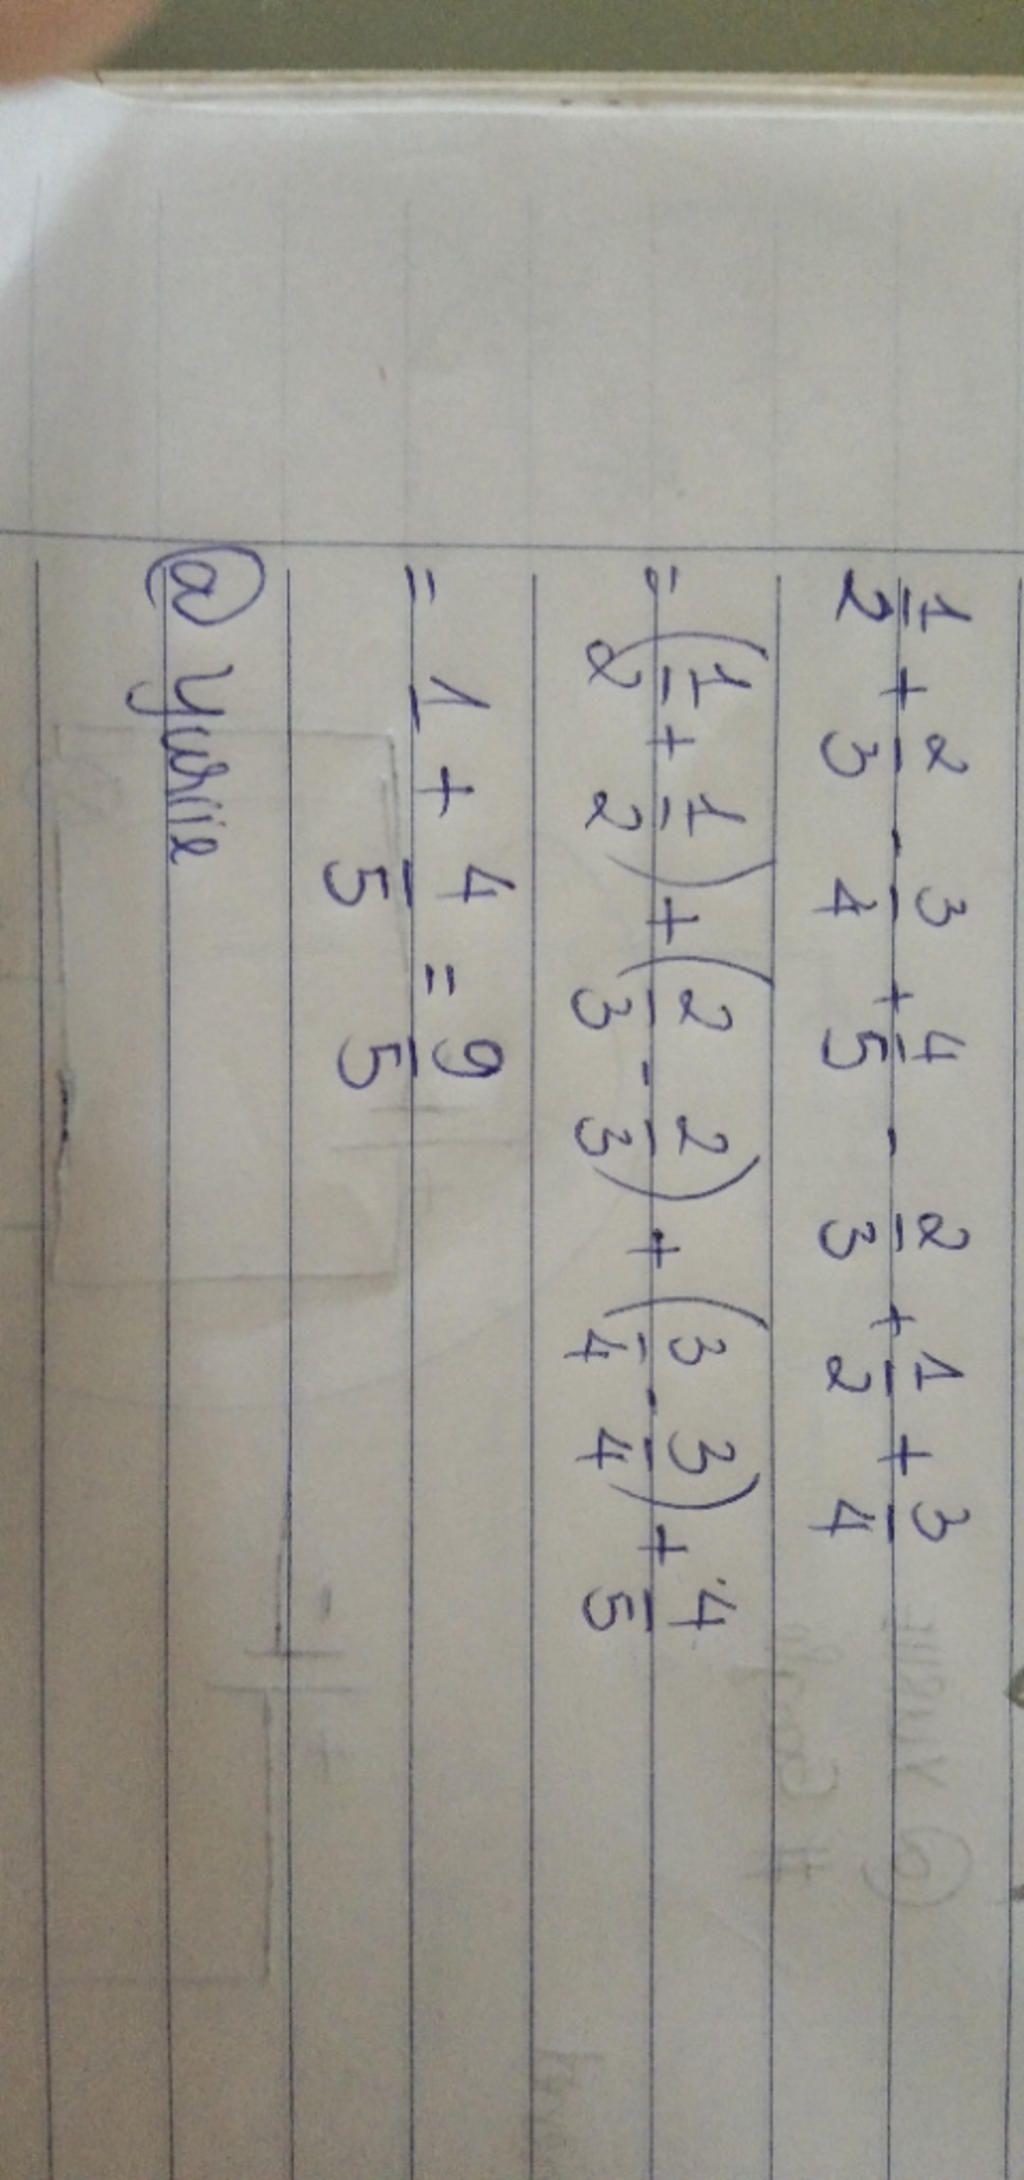 1/2 + 2/3 - 3/4 + 4/5 - 2/3 + 1/2 + 3/4
= (1/2 + 1/2) + (2/3 - 2/3) + (3/4 - 3/4) + 4/5
= 1 + 4/5 = 9/5
@ yuriie